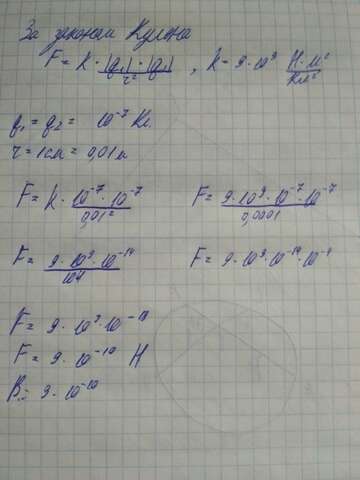 За законом Кулона
F = k · |q₁| · |q₂| / r² , k = 9 · 10⁹ Н · м² / Кл²
q₁ = q₂ = 10⁻⁷ Кл.
r = 1 см = 0,01 м
F = k · 10⁻⁷ · 10⁻⁷ / 0,01² F = 9 · 10⁹ · 10⁻⁷ · 10⁻⁷ / 0,0001
F = 9 · 10⁹ · 10⁻¹⁴ / 104 F = 9 · 10⁹ · 10⁻¹⁴ · 10⁻⁴
F = 9 · 10⁹ · 10⁻¹⁸
F = 9 · 10⁻¹⁰ Н
В: 9 · 10⁻¹⁰